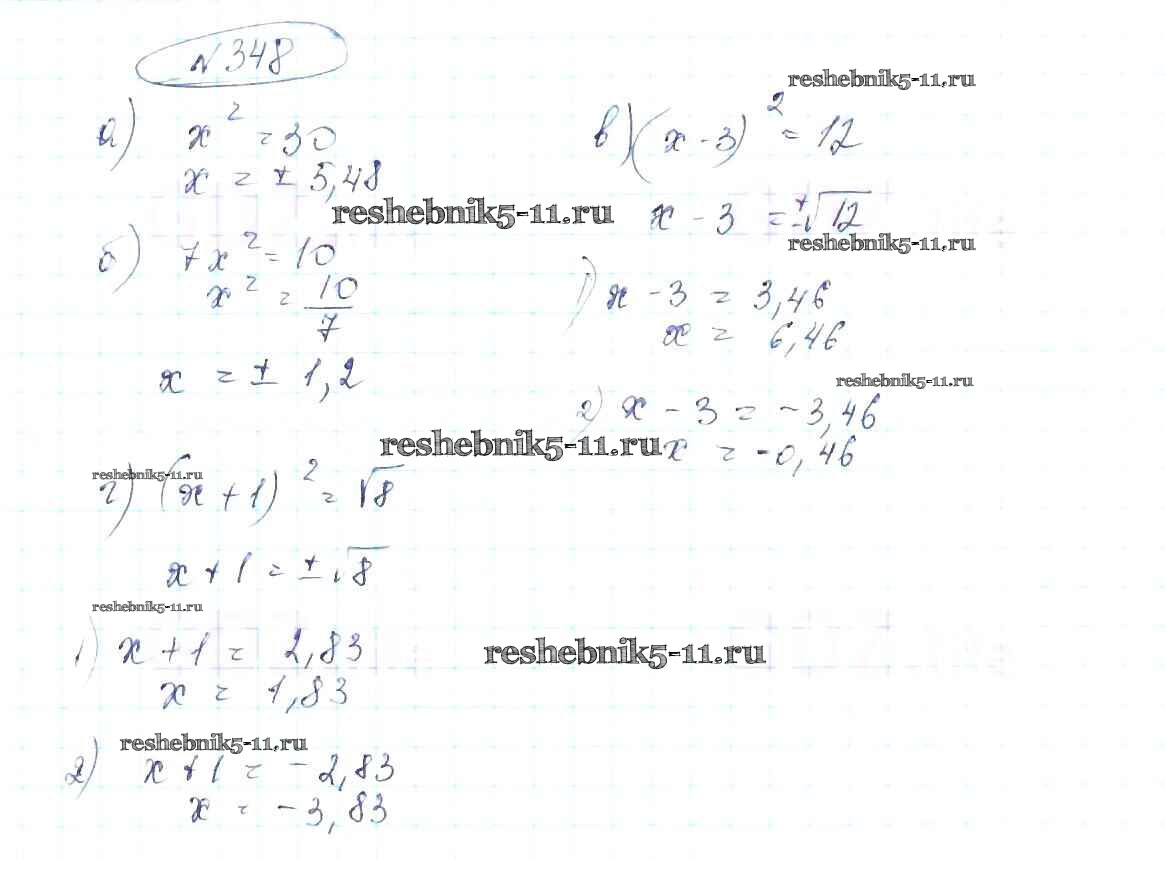 №348
reshebnik5-11.ru
а) x² = 30
x = ± 5,48
reshebnik5-11.ru
б) 7x² = 10
x² = 10/7
x = ± 1,2
в) (x - 3)² = 12
x - 3 = ±√12
reshebnik5-11.ru
1) x - 3 = 3,46
x = 6,46
reshebnik5-11.ru
2) x - 3 = -3,46
x = -0,46
reshebnik5-11.ru
reshebnik5-11.ru
г) (x + 1)² = √8
x + 1 = ±√8
reshebnik5-11.ru
1) x + 1 = 2,83
x = 1,83
reshebnik5-11.ru
reshebnik5-11.ru
2) x + 1 = -2,83
x = -3,83